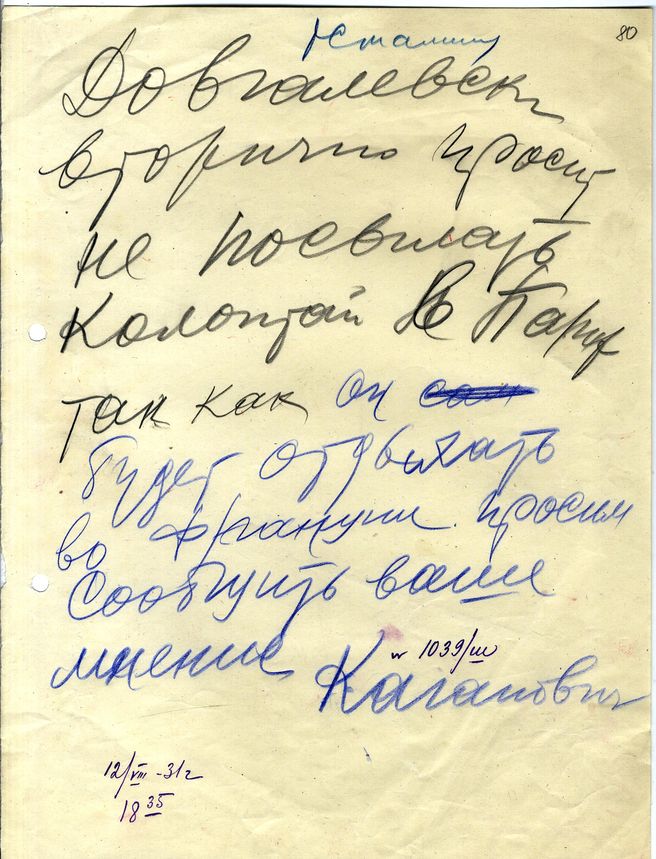 80
т. Сталину
Довгалевски
вторично просит
не посылать
Колонтай в Париж
так как он сам
будет отдыхать
во Франции. просим
Сообщить ваше
мнение
н 1039/ш
Каганович
12/VIII-31г
18 35